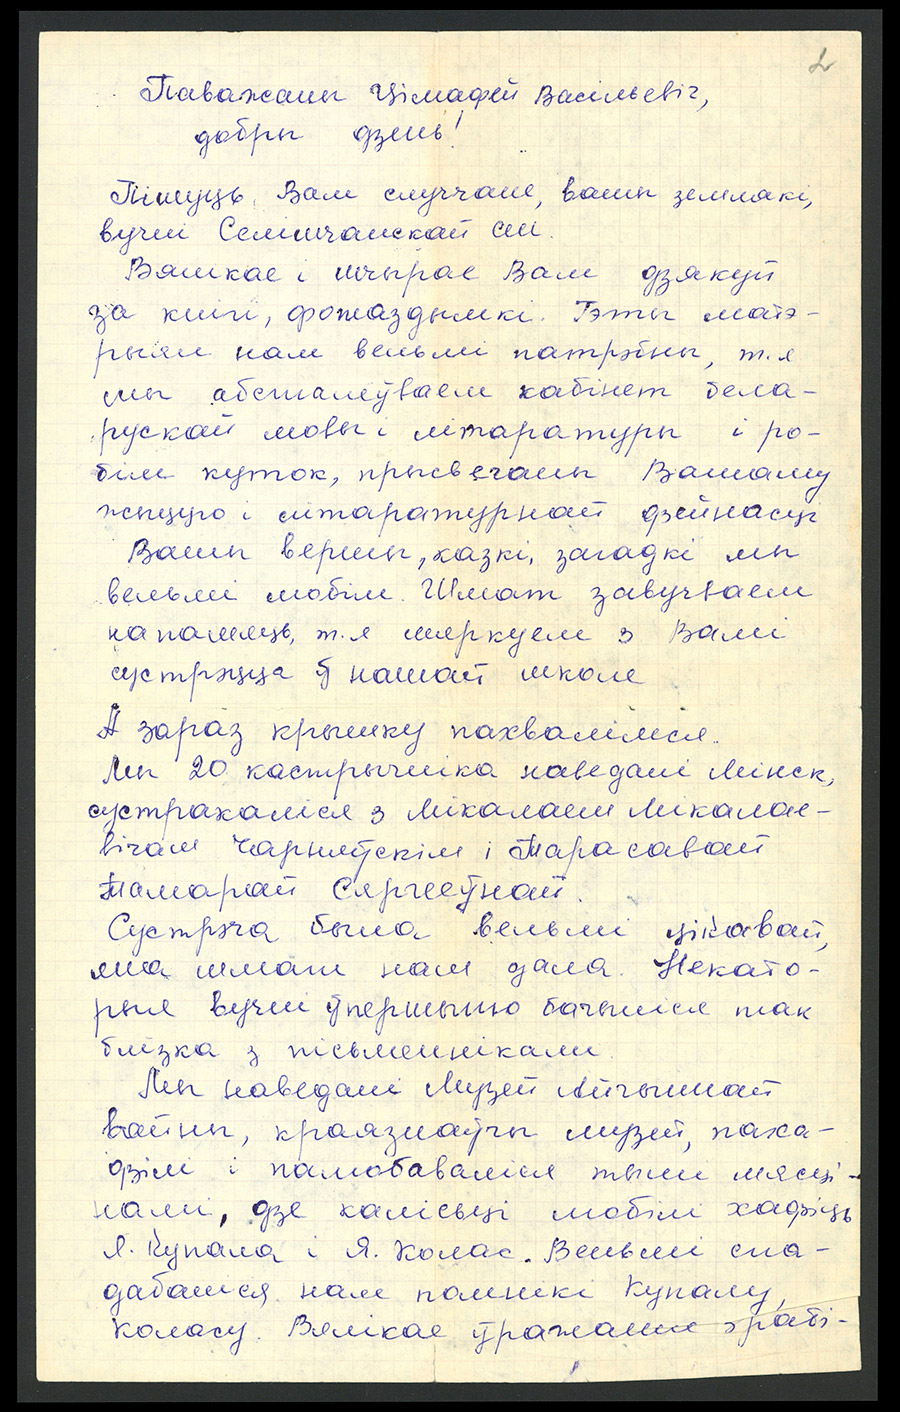 2
Паважаны Цімафей Васільевіч,
добры дзень!
Пішуць Вам случчане, вашы землякі,
вучні Селішчанскай сш.
Вялікае і шчырае Вам дзякуй
за кнігі, фотаздымкі. Гэты матэ-
рыял нам вельмі патрэбны, т.я
мы абсталёўваем кабінет бела-
рускай мовы і літаратуры і ро-
бім куток, прысвечаны Вашаму
жыццю і літаратурнай дзейнасці
Вашы вершы, казкі, загадкі мы
вельмі любім. Шмат завучваем
на памяць, т.я мяркуем з Вамі
сустрэцца ў нашай школе
А зараз крышку пахвалімся.
Мы 20 кастрычніка наведалі Мінск,
сустракаліся з Мікалаем Мікалае-
вічам Чарняўскім і Тарасавай
Тамарай Сяргееўнай.
Сустрэча была вельмі цікавай,
яна шмат нам дала. Некато-
рыя вучні ўпершыню бачыліся так
блізка з пісьменнікамі.
Мы наведалі Музей Айчыннай
вайны, краязнаўчы музей, паха-
дзілі і палюбаваліся тымі мясці-
намі, дзе калісьці любілі хадзіць
Я. Купала і Я. Колас. Вельмі спа-
дабаліся нам помнікі Купалу,
Коласу. Вялікае ўражанне зрабі-